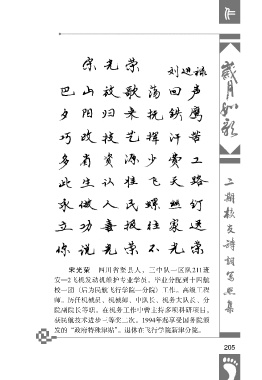 作
宋光荣
刘进禄
巴山放歌荡回声
夕阳归来抚铁鹰
巧改技艺挥汗苦
多省资源少费工
此生认准飞天路
永做人民螺丝钉
立功喜报往家送
你说光荣不光荣
岁月如歌
二期校友诗词写照集
宋光荣 四川省垫江人，三中队一区队211班
安—2飞机发动机维护专业学员。毕业分配到十四航
校一团（后为民航飞行学院一分院）工作。高级工程
师。历任机械员、机械师、中队长、机务大队长、分
院副院长等职。在机务工作中曾主持多项科研项目。
获民航技术进步三等奖二次。1994年起享受国务院颁
发的“政府特殊津贴”。退休在飞行学院新津分院。
205